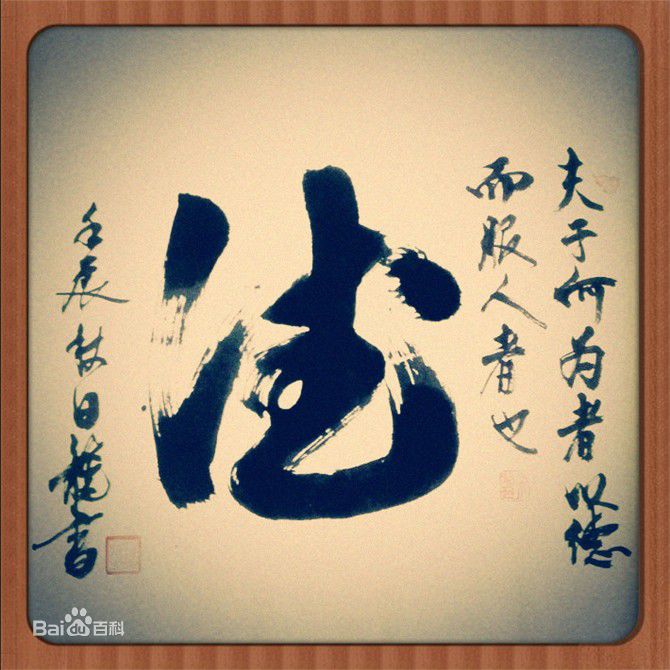 夫于何为者以德
而服人者也
德
壬辰秋日龍書
Bai百科